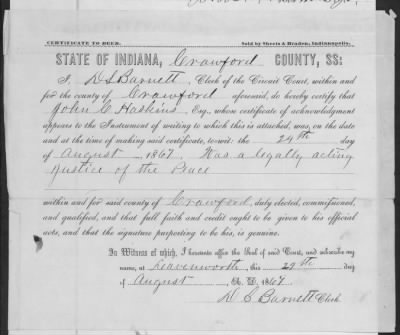 CERTIFICATE TO DEED. Sold by Sheets & Braden, Indianapolis.
STATE OF INDIANA, Crawford COUNTY, SS:
I, D S Barnett, Clerk of the Circuit Court, within and
for the county of Crawford aforesaid, do hereby certify that
John C Haskins, Esq., whose certificate of acknowledgment
appears to the Instrument of writing to which this is attached, was, on the date
and at the time of making said certificate, to-wit: the 24th day
of August 1867, Was a legally acting
Justice of the Peace
within and for said county of Crawford, duly elected, commissioned,
and qualified, and that full faith and credit ought to be given to his official
acts, and that the signature purporting to be his, is genuine.
In Witness of which, I hereunto affix the Seal of said Court, and subscribe my
name, at Leavenworth, this 29th day
of August A. D. 1867
D. S. Barnett Clerk